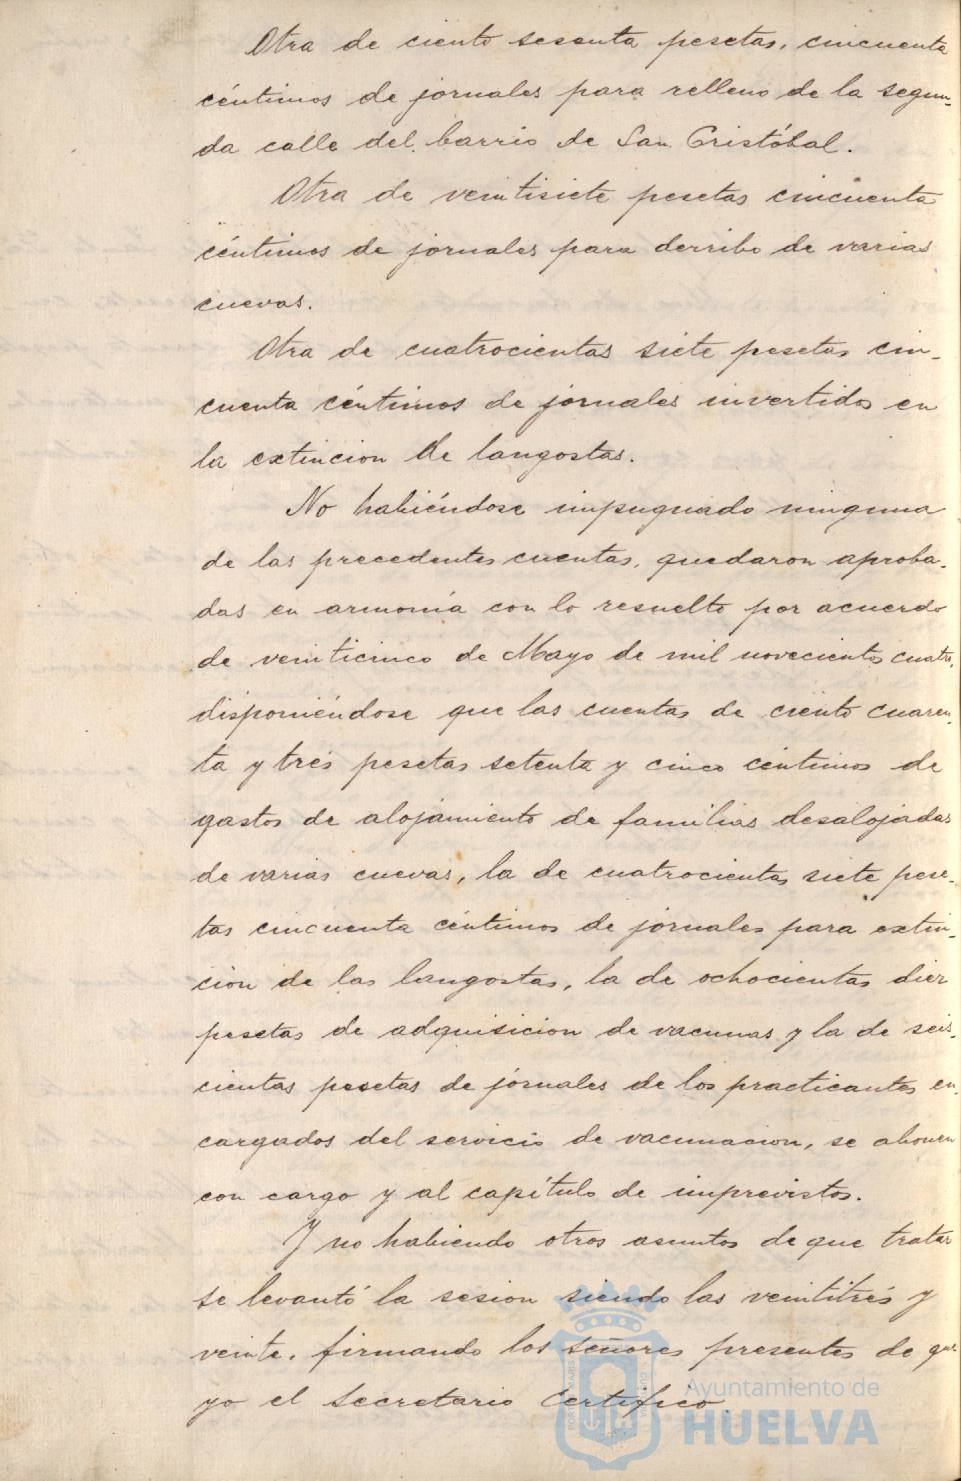 Otra de ciento sesenta pesetas, cincuenta
céntimos de jornales para relleno de la segun-
da calle del barrio de San Cristóbal.
Otra de veintisiete pesetas cincuenta
céntimos de jornales para derribo de varias
cuevas.
Otra de cuatrocientas siete pesetas cin-
cuenta céntimos de jornales invertidos en
la extincion de langostas.
No habiéndose impugnado ninguna
de las precedentes cuentas, quedaron aproba-
das en armonía con lo resuelto por acuerdo
de veinticinco de Mayo de mil novecientos cuatro,
disponiéndose que las cuentas de ciento cuaren-
ta y tres pesetas setenta y cinco céntimos de
gastos de alojamiento de familias desalojadas
de varias cuevas, la de cuatrocientas siete pese-
tas cincuenta céntimos de jornales para extin-
cion de las langostas, la de ochocientas diez
pesetas de adquisicion de vacunas y la de seis-
cientas pesetas de jornales de los practicantes en-
cargados del servicio de vacunacion, se abonen
con cargo y al capítulo de imprevistos.
Y no habiendo otros asuntos de que tratar
se levantó la sesion siendo las veintitrés y
veinte, firmando los señores presentes de que
yo el Secretario Certifico.
Ayuntamiento de
HUELVA